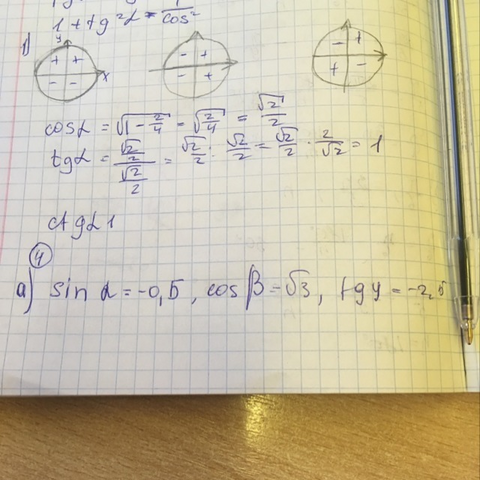 1 + tg²α = 1/cos²
1)
y
x
+ +
- -
- +
- +
- +
+ -
cosα = √1 - 2/4 = √2/4 = √2/2
tgα = √2/2 / √2/2 = √2/2 : √2/2 = √2/2 · 2/√2 = 1
ctgα 1
4
a) sin α = -0,5, cos β = √3, tg γ = -2,5